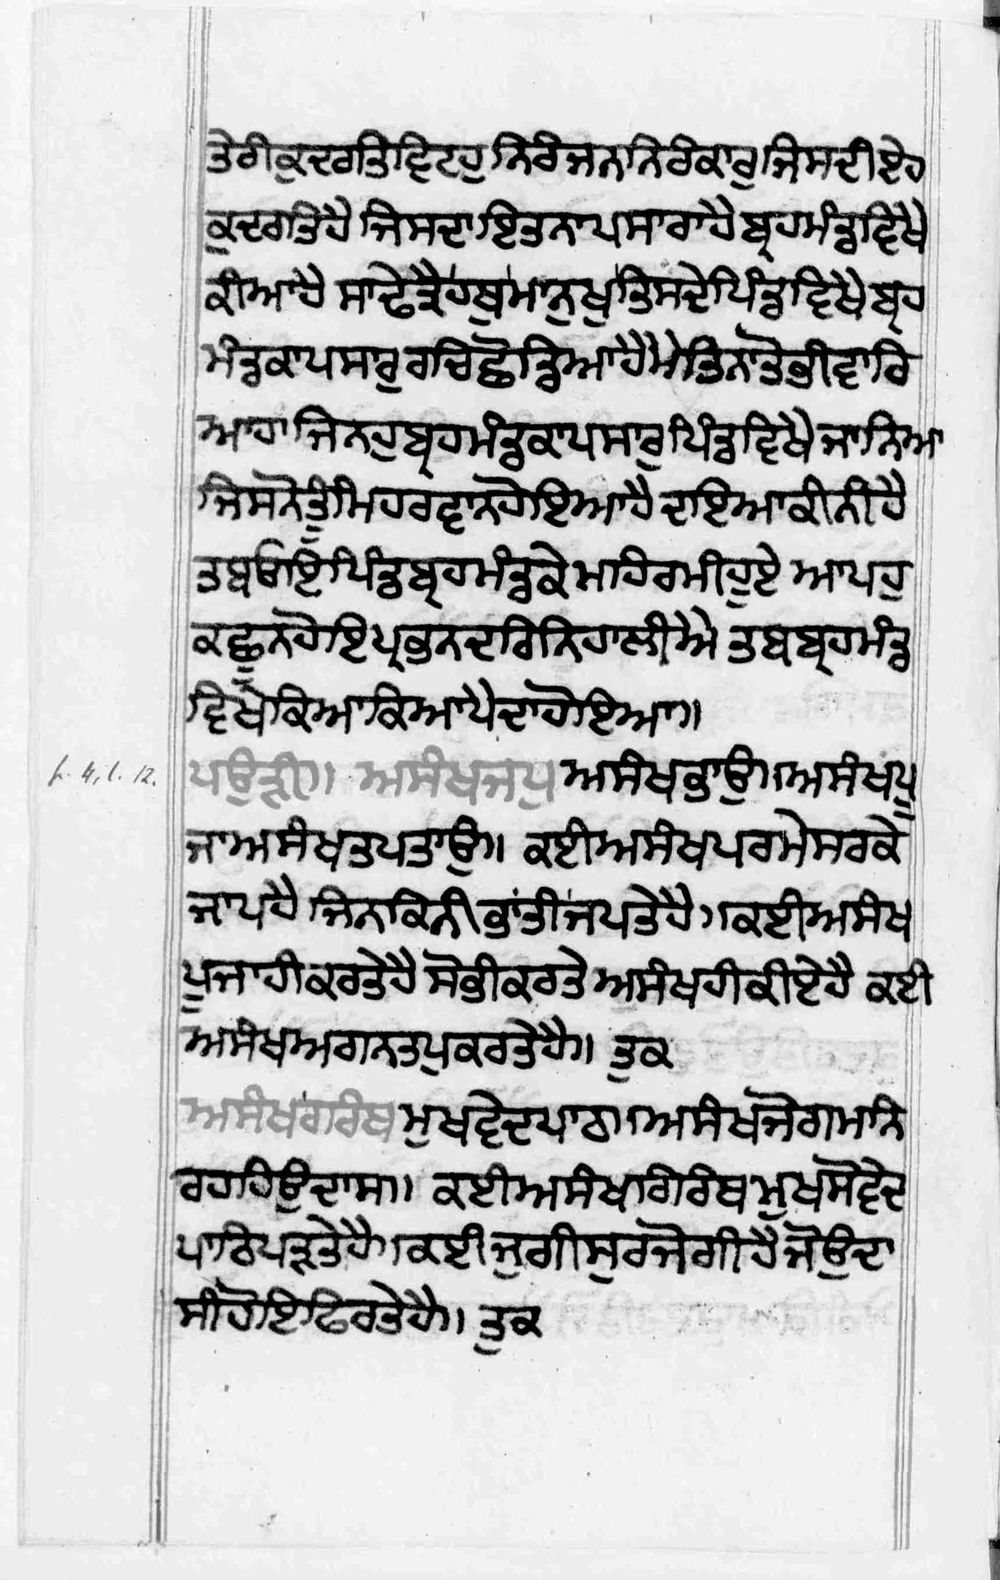 ਤੇਰੀਕੁਦਰਤਿਵਿਟਹੁਨਿਰਿਜਨਨਿਰਿਕਾਰੁਜਿਸਦੀਏਹ
ਕੁਦਰਤਿਹੈ ਜਿਸਦਾਇਤਨਾਪਸਾਰਾਹੈ ਬ੍ਰਹਮੰਡਵਿਖੈ
ਕੀਆਹੈ ਸਾਢੇਤ੍ਰੈਹਥੁਮਾਨੁਖੁਤਿਸਦੇਪਿੰਡਵਿਖੈ ਬ੍ਰਹ
ਮੰਡਕਾਪਸਾਰੁਰਚਿਛੋਡਿਆਹੈਮੈਤਿਨਾਤੋਭੀਵਾਰਿ
ਆਹਾਜਿਨਹੁਬ੍ਰਹਮੰਡਕਾਪਸਾਰੁਪਿੰਡਵਿਖੈ ਜਾਨਿਆ
ਜਿਸਨੋਤੂੰਮਿਹਰਵਾਨਹੋਇਆਹੈ ਦਾਇਆਕੀਨੀਹੈ
ਤਬਓਇਪਿੰਡਬ੍ਰਹਮੰਡਕੇਮਾਹਿਰਮੀਹੁਏ ਆਪਹੁ
ਕਛੂਨਹੋਇਪ੍ਰਭਨਦਰਿਨਿਹਾਲੀਐ ਤਬਬ੍ਰਹਮੰਡ
ਵਿਖੇਕਿਆਕਿਆਪੈਦਾਹੋਇਆ॥
L. 4, l. 12. ਪਉੜੀ॥ ਅਸੰਖਜਪੁਅਸੰਖਭਾਉ॥ਅਸੰਖਪੂ
ਜਾਅਸੰਖਤਪਤਾਉ॥ ਕਈਅਸੰਖਪਰਮੇਸਰਕੇ
ਜਾਪਹੈ ਜਿਨਕਿਨੀਭਾਂਤੀਜਪਤੇਹੈ।ਕਈਅਸੰਖ
ਪੂਜਾਹੀਕਰਤੇਹੈ ਸੋਭੀਕਰਤੇ ਅਸੰਖਹੀਕੀਏਹੈ ਕਈ
ਅਸੰਖਅਗਨਤਪੁਕਰਤੇਹੈ॥ ਤੁਕ
ਅਸੰਖਗਰਿਥਮੁਖਵੇਦਪਾਠ॥ਅਸੰਖਜੋਗਮਨਿ
ਰਹਹਿਉਦਾਸ॥ ਕਈਅਸੰਖਗਿਰਿਥਮੁਖਸੋਵੇਦ
ਪਾਠਿਪੜਤੇਹੈ।ਕਈਜੁਗੀਸੁਰਜੋਗੀਹੈ ਜੋਉਦਾ
ਸੀਹੋਇਫਿਰਤੇਹੈ॥ ਤੁਕ